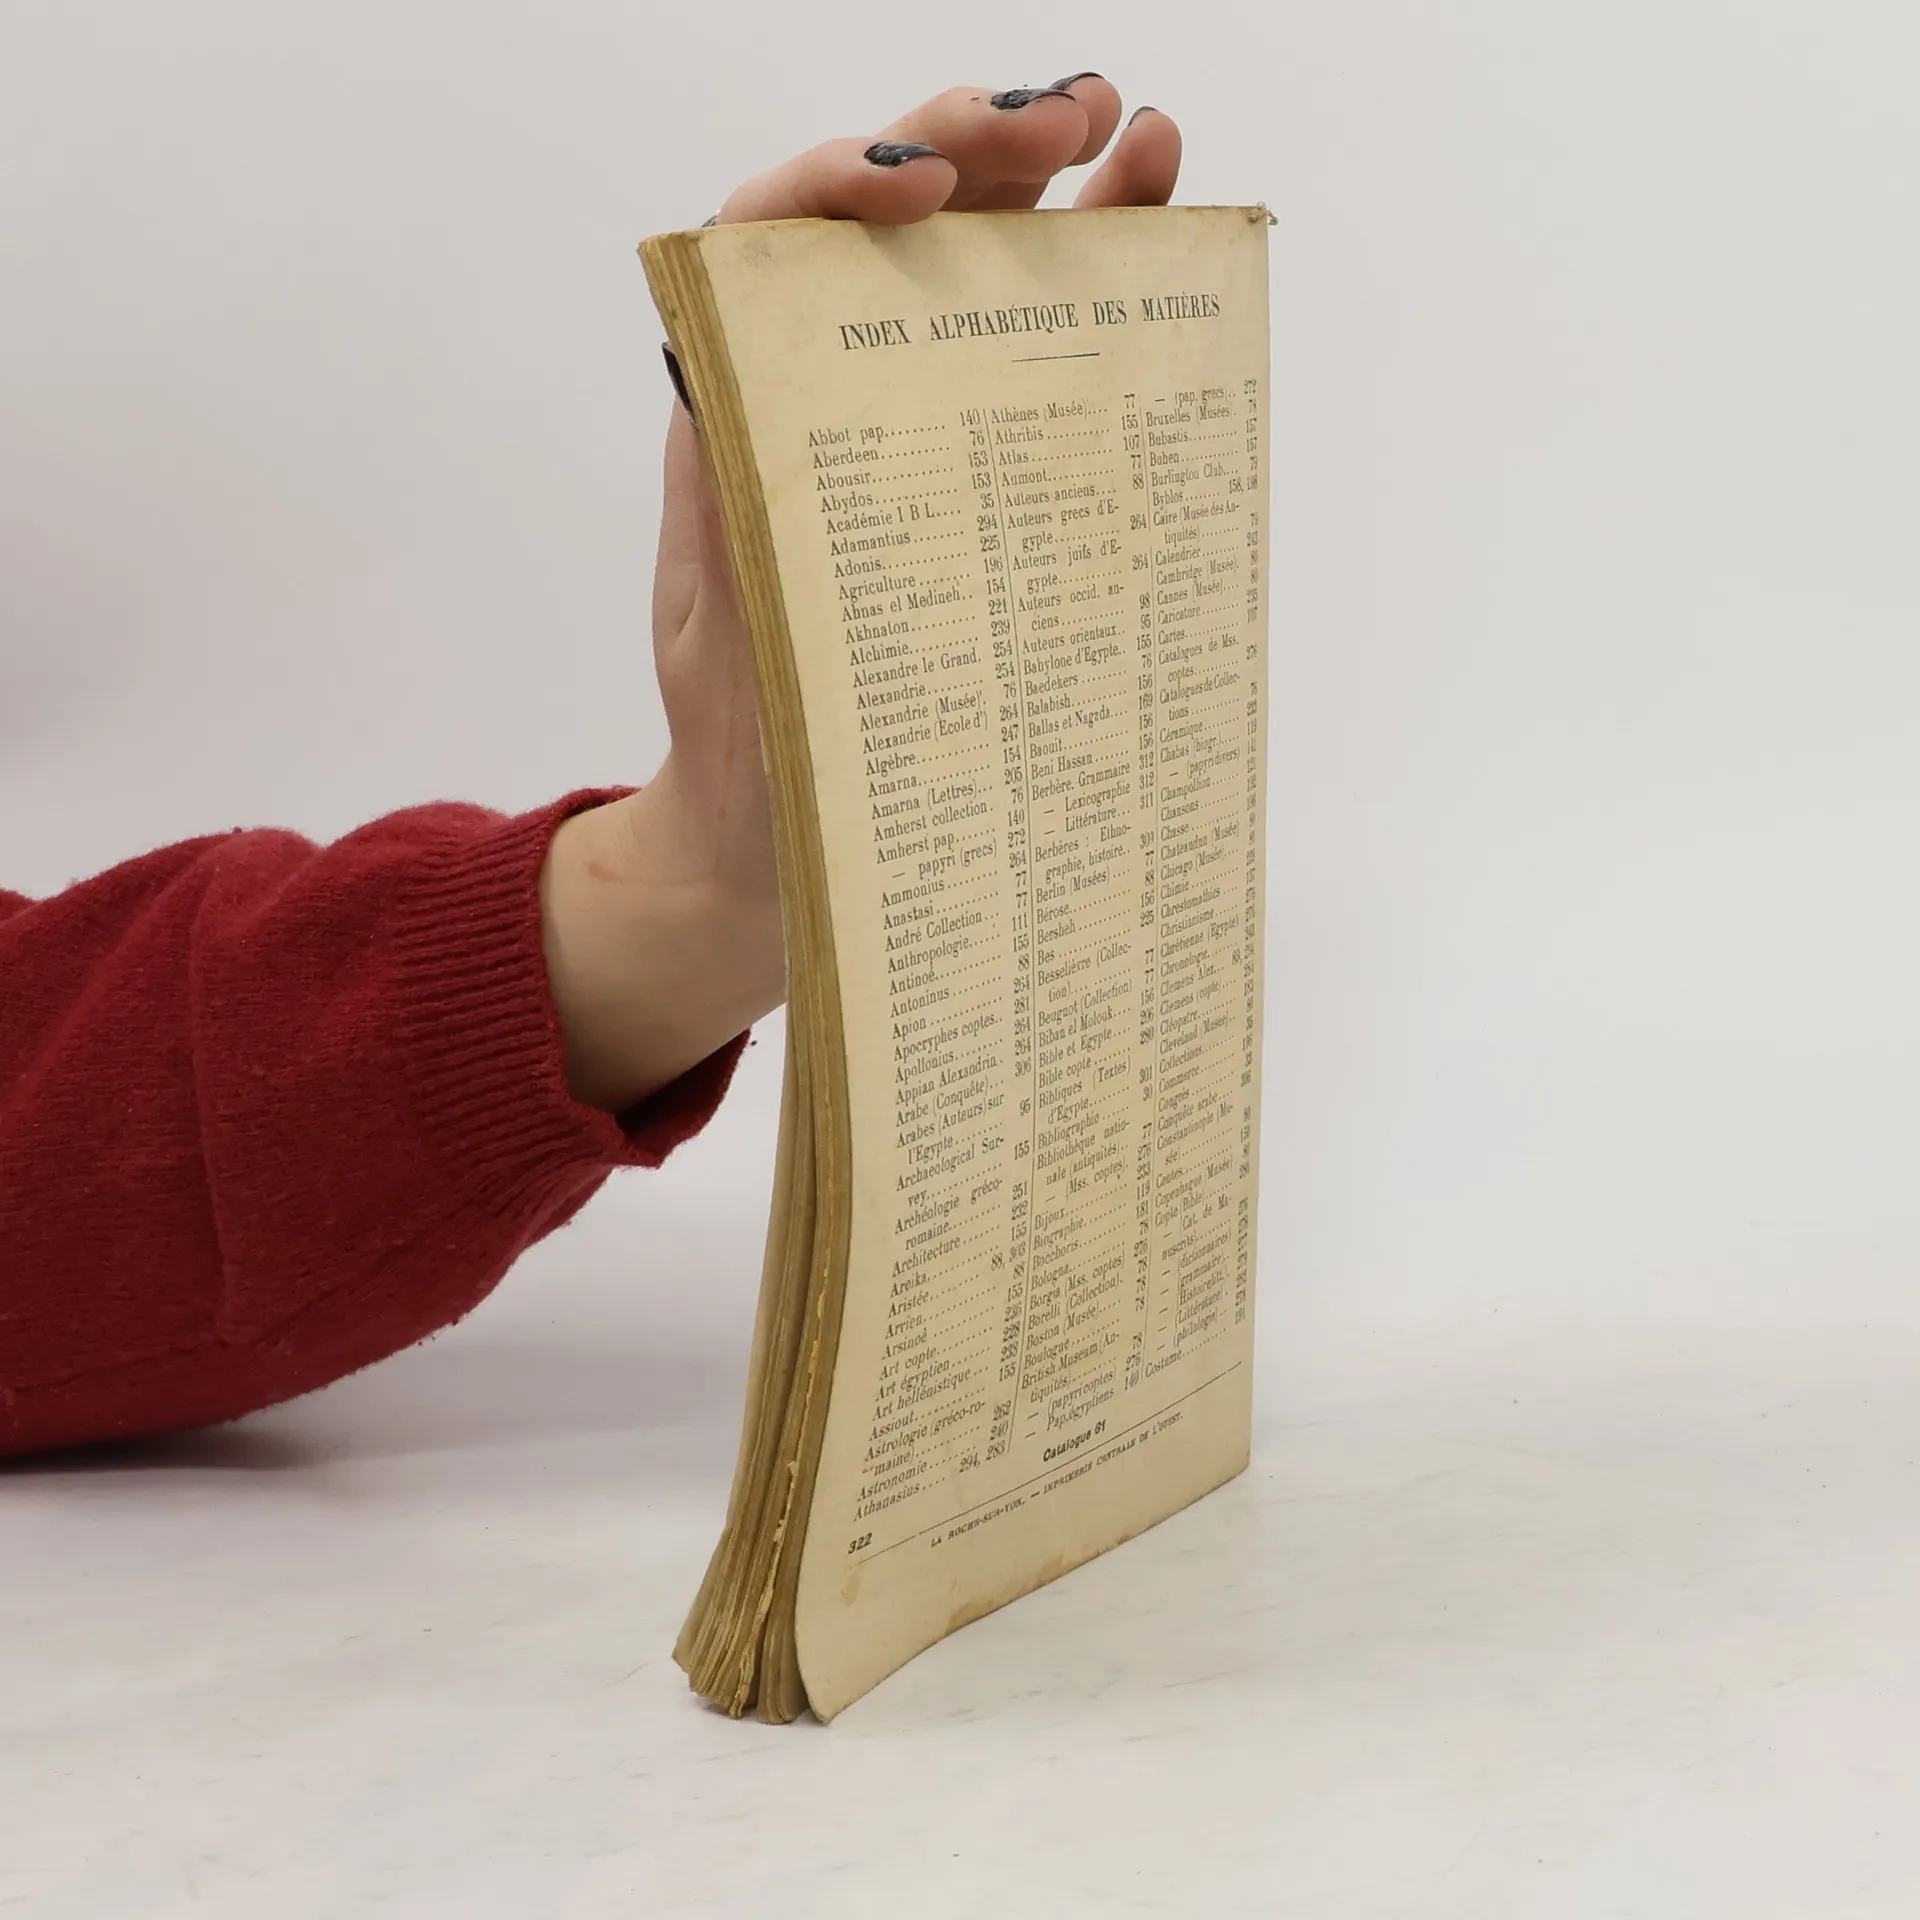 INDEX ALPHABÉTIQUE DES MATIÈRES
Abbot pap......... 140
Aberdeen.......... 76
Abousir........... 153
Abydos............ 153
Académie I B L.... 35
Adamantius........ 294
Adonis............ 225
Agriculture........ 196
Ahnas el Medineh.. 154
Akhnaton.......... 221
Alchimie.......... 239
Alexandre le Grand. 254
Alexandrie........ 254
Alexandrie (Musée). 76
Alexandrie (École d') 264
Algèbre........... 247
Amarna............ 154
Amarna (Lettres)... 205
Amherst collection. 76
Amherst pap....... 140
— papyri (grecs) 272
Ammonius......... 264
Anastasi.......... 77
André Collection... 77
Anthropologie...... 111
Antinoé........... 155
Antoninus......... 88
Apion............ 264
Apocryphes coptes.. 281
Apollonius........ 264
Appian Alexandrin. 264
Arabe (Conquête)... 306
Arabes (Auteurs) sur
l'Egypte......... 95
Archaeological Sur-
vey............. 155
Archéologie gréco-
romaine.......... 251
Architecture....... 232
Areika............ 155
Aristée........... 88, 303
Arrien............ 88
Arsinoé........... 155
Art copte......... 236
Art égyptien...... 228
Art hellénistique... 233
Assiout........... 155
Astrologie (gréco-ro-
maine).......... 262
Astronomie........ 240
Athanasius.... 294, 283
Athènes (Musée).... 77
Athribis........... 155
Atlas............. 107
Aumont........... 77
Auteurs anciens.... 88
Auteurs grecs d'E-
gypte............ 264
Auteurs juifs d'E-
gypte............ 264
Auteurs occid. an-
ciens............ 98
Auteurs orientaux.. 95
Babylone d'Egypte.. 155
Baedekers......... 76
Balabish.......... 156
Ballas et Nagada.... 169
Baouit............ 156
Beni Hassan....... 156
Berbère. Grammaire 312
— Lexicographie 312
— Littérature... 311
Berbères : Ethno-
graphie, histoire.. 309
Berlin (Musées).... 77
Bérose............ 88
Bersheh........... 156
Bes.............. 225
Besselièvre (Collec-
tion)............ 77
Beugnot (Collection) 77
Biban el Molouk.... 156
Bible et Egypte.... 206
Bible copte........ 280
Bibliques (Textes)
d'Egypte......... 301
Bibliographie...... 30
Bibliothèque natio-
nale (antiquités).. 77
— (Mss. coptes). 276
Bijoux............ 233
Biographie........ 119
Bocchoris......... 181
Bologna........... 78
Borgia (Mss. coptes) 276
Borelli (Collection). 78
Boston (Musée).... 78
Boulogne.......... 78
British Museum (An-
tiquités)......... 78
— (papyri coptes) 276
— Pap. égyptiens 140
— (pap. grecs).. 272
Bruxelles (Musées). 78
Bubastis........... 157
Buhen............ 157
Burlington Club.... 79
Byblos........ 158, 198
Caire (Musée des An-
tiquités)......... 79
Calendrier......... 243
Cambridge (Musée). 80
Cannes (Musée).... 80
Caricature........ 235
Cartes............ 107
Catalogues de Mss.
coptes........... 276
Catalogues de Collec-
tions............ 76
Céramique......... 233
Chabas (biogr.)..... 119
— (papyri divers) 141
Champollion....... 121
Chansons.......... 132
Chasse............ 196
Chateaudun (Musée) 80
Chicago (Musée).... 80
Chimie............
Chrestomathies.... 137
Christianisme......
Chrétienne (Egypte)
Chronologie........
Clemens Alex...
Clemens (copte)....
Cléopatre......... 183
Cleveland (Musée).. 80
Collections........ 35
Commerce......... 196
Congrès........... 33
Conquête arabe.... 306
Constantinople (Mu-
sée)............. 80
Contes............
Copenhague (Musée) 80
Copte (Bible)......
— Cat. de Ma-
nuscrits)......... 276
— (dictionnaires)
— (grammaire).
— (Histoire litt.).
— (Littérature).
— (philologie)..
Costume........... 191
Catalogue 61
322
LA ROCHE-SUR-YON. — IMPRIMERIE CENTRALE DE L'OUEST.